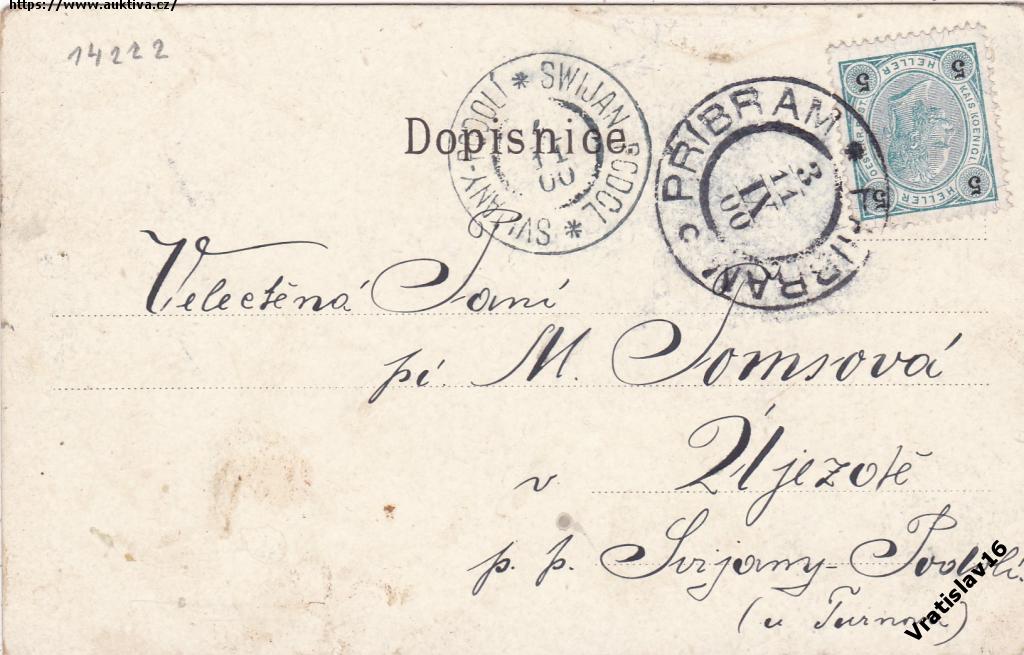 https://www.auktiva.cz/
14222
Dopisnice
SWIJAN-PODOL * SVIJANY-PODOLÍ *
11
00
PŘIBRAM * PŘIBRAM
3
11
IX
00
5 HELLER 5
KAIS KOENIGL
5 HELLER 5
Velectěná Paní
pí. M. Tomsová
v Újezdě
p. p. Svijany-Podolí
(u Turnova)
Vratislav16